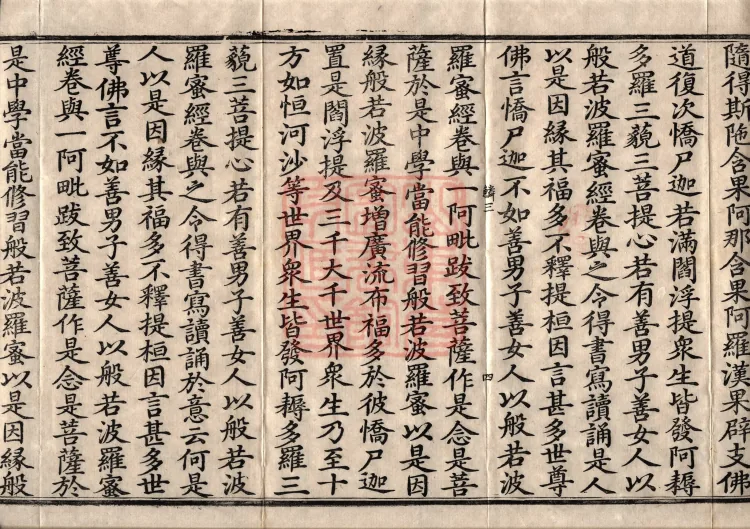 隨得斯陁含果阿那含果阿羅漢果辟支佛
道復次憍尸迦若滿閻浮提衆生皆發阿耨
多羅三藐三菩提心若有善男子善女人以
般若波羅蜜經卷與之令得書寫讀誦是人
以是因緣其福多不釋提桓因言甚多世尊
佛言憍尸迦不如善男子善女人以般若波
三 四
羅蜜經卷與一阿毗跋致菩薩作是念是菩
薩於是中學當能修習般若波羅蜜以是因
緣般若波羅蜜增廣流布福多於彼憍尸迦
置是閻浮提及三千大千世界衆生乃至十
方如恒河沙等世界衆生皆發阿耨多羅三
藐三菩提心若有善男子善女人以般若波
羅蜜經卷與之令得書寫讀誦於意云何是
人以是因緣其福多不釋提桓因言甚多世
尊佛言不如善男子善女人以般若波羅蜜
經卷與一阿毗跋致菩薩作是念是菩薩於
是中學當能修習般若波羅蜜以是因緣般